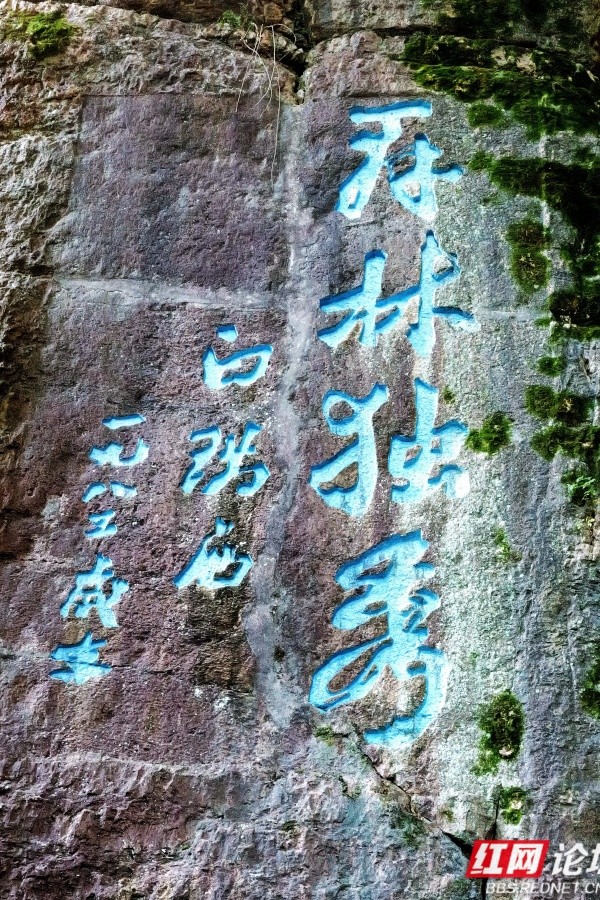 林独秀
白瑞西
一九八五
红网论坛
BBS.REDNET.CN